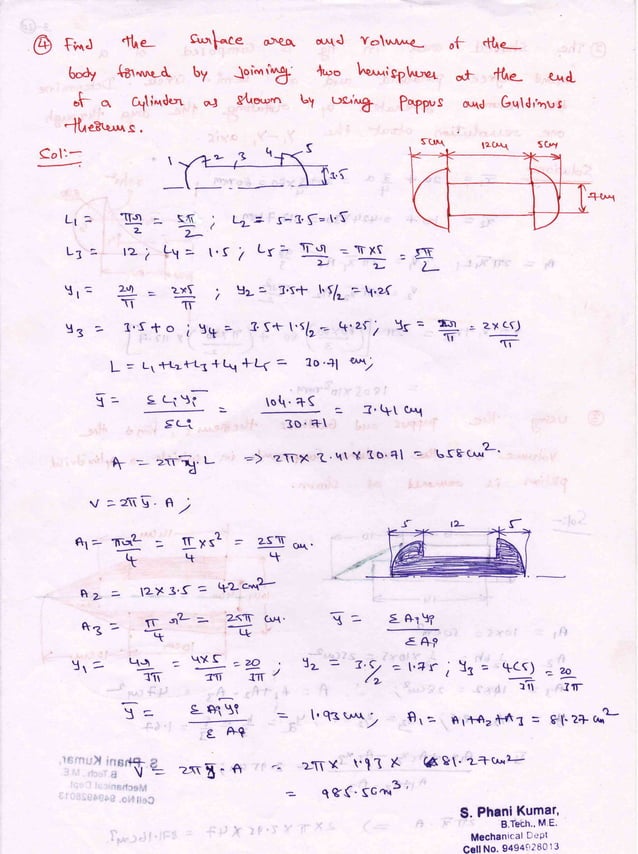 ④ Find the surface area and volume of the
body formed by joining two hemispheres at the end
of a cylinder as shown by using Pappus and Guldinus
theorems.
Sol:-
1 2 3 4 5
3.5
5cm 12cm 5cm
7cm
L₁ = πr/2 = 5π/2 ; L₂ = 5-3.5 = 1.5
L₃ = 12 ; L₄ = 1.5 ; L₅ = πr/2 = π×5/2 = 5π/2
y₁ = 2r/π = 2×5/π ; y₂ = 3.5 + 1.5/2 = 4.25
y₃ = 3.5+0 ; y₄ = 3.5 + 1.5/2 = 4.25 ; y₅ = 2r/π = 2×(5)/π
L = L₁+L₂+L₃+L₄+L₅ = 30.71 cm;
ȳ = ΣLᵢȳᵢ/ΣLᵢ = 104.75/30.71 = 3.41 cm
A = 2πȳ.L => 2π × 3.41 × 30.71 = 658cm².
V = 2πȳ. A ;
5 12 5
A₁ = πr²/4 = π/4 × 5² = 25π/4 cm.
A₂ = 12×3.5 = 42cm²
A₃ = π/4 r² = 25π/4 cm. ȳ = ΣAᵢyᵢ/ΣAᵢ
y₁ = 4r/3π = 4×5/3π = 20/3π ; y₂ = 3.5/2 = 1.75 ; y₃ = 4(5)/3π = 20/3π
ȳ = ΣAᵢȳᵢ/ΣAᵢ = 1.93 cm ; A₁ = A₁+A₂+A₃ = 81.27 cm²
V = 2πȳ. A = 2π × 1.93 × 81.27cm²
= 985.5cm³.
S. Phani Kumar,
B.Tech., M.E.
Mechanical Dept
Cell No. 9494928013